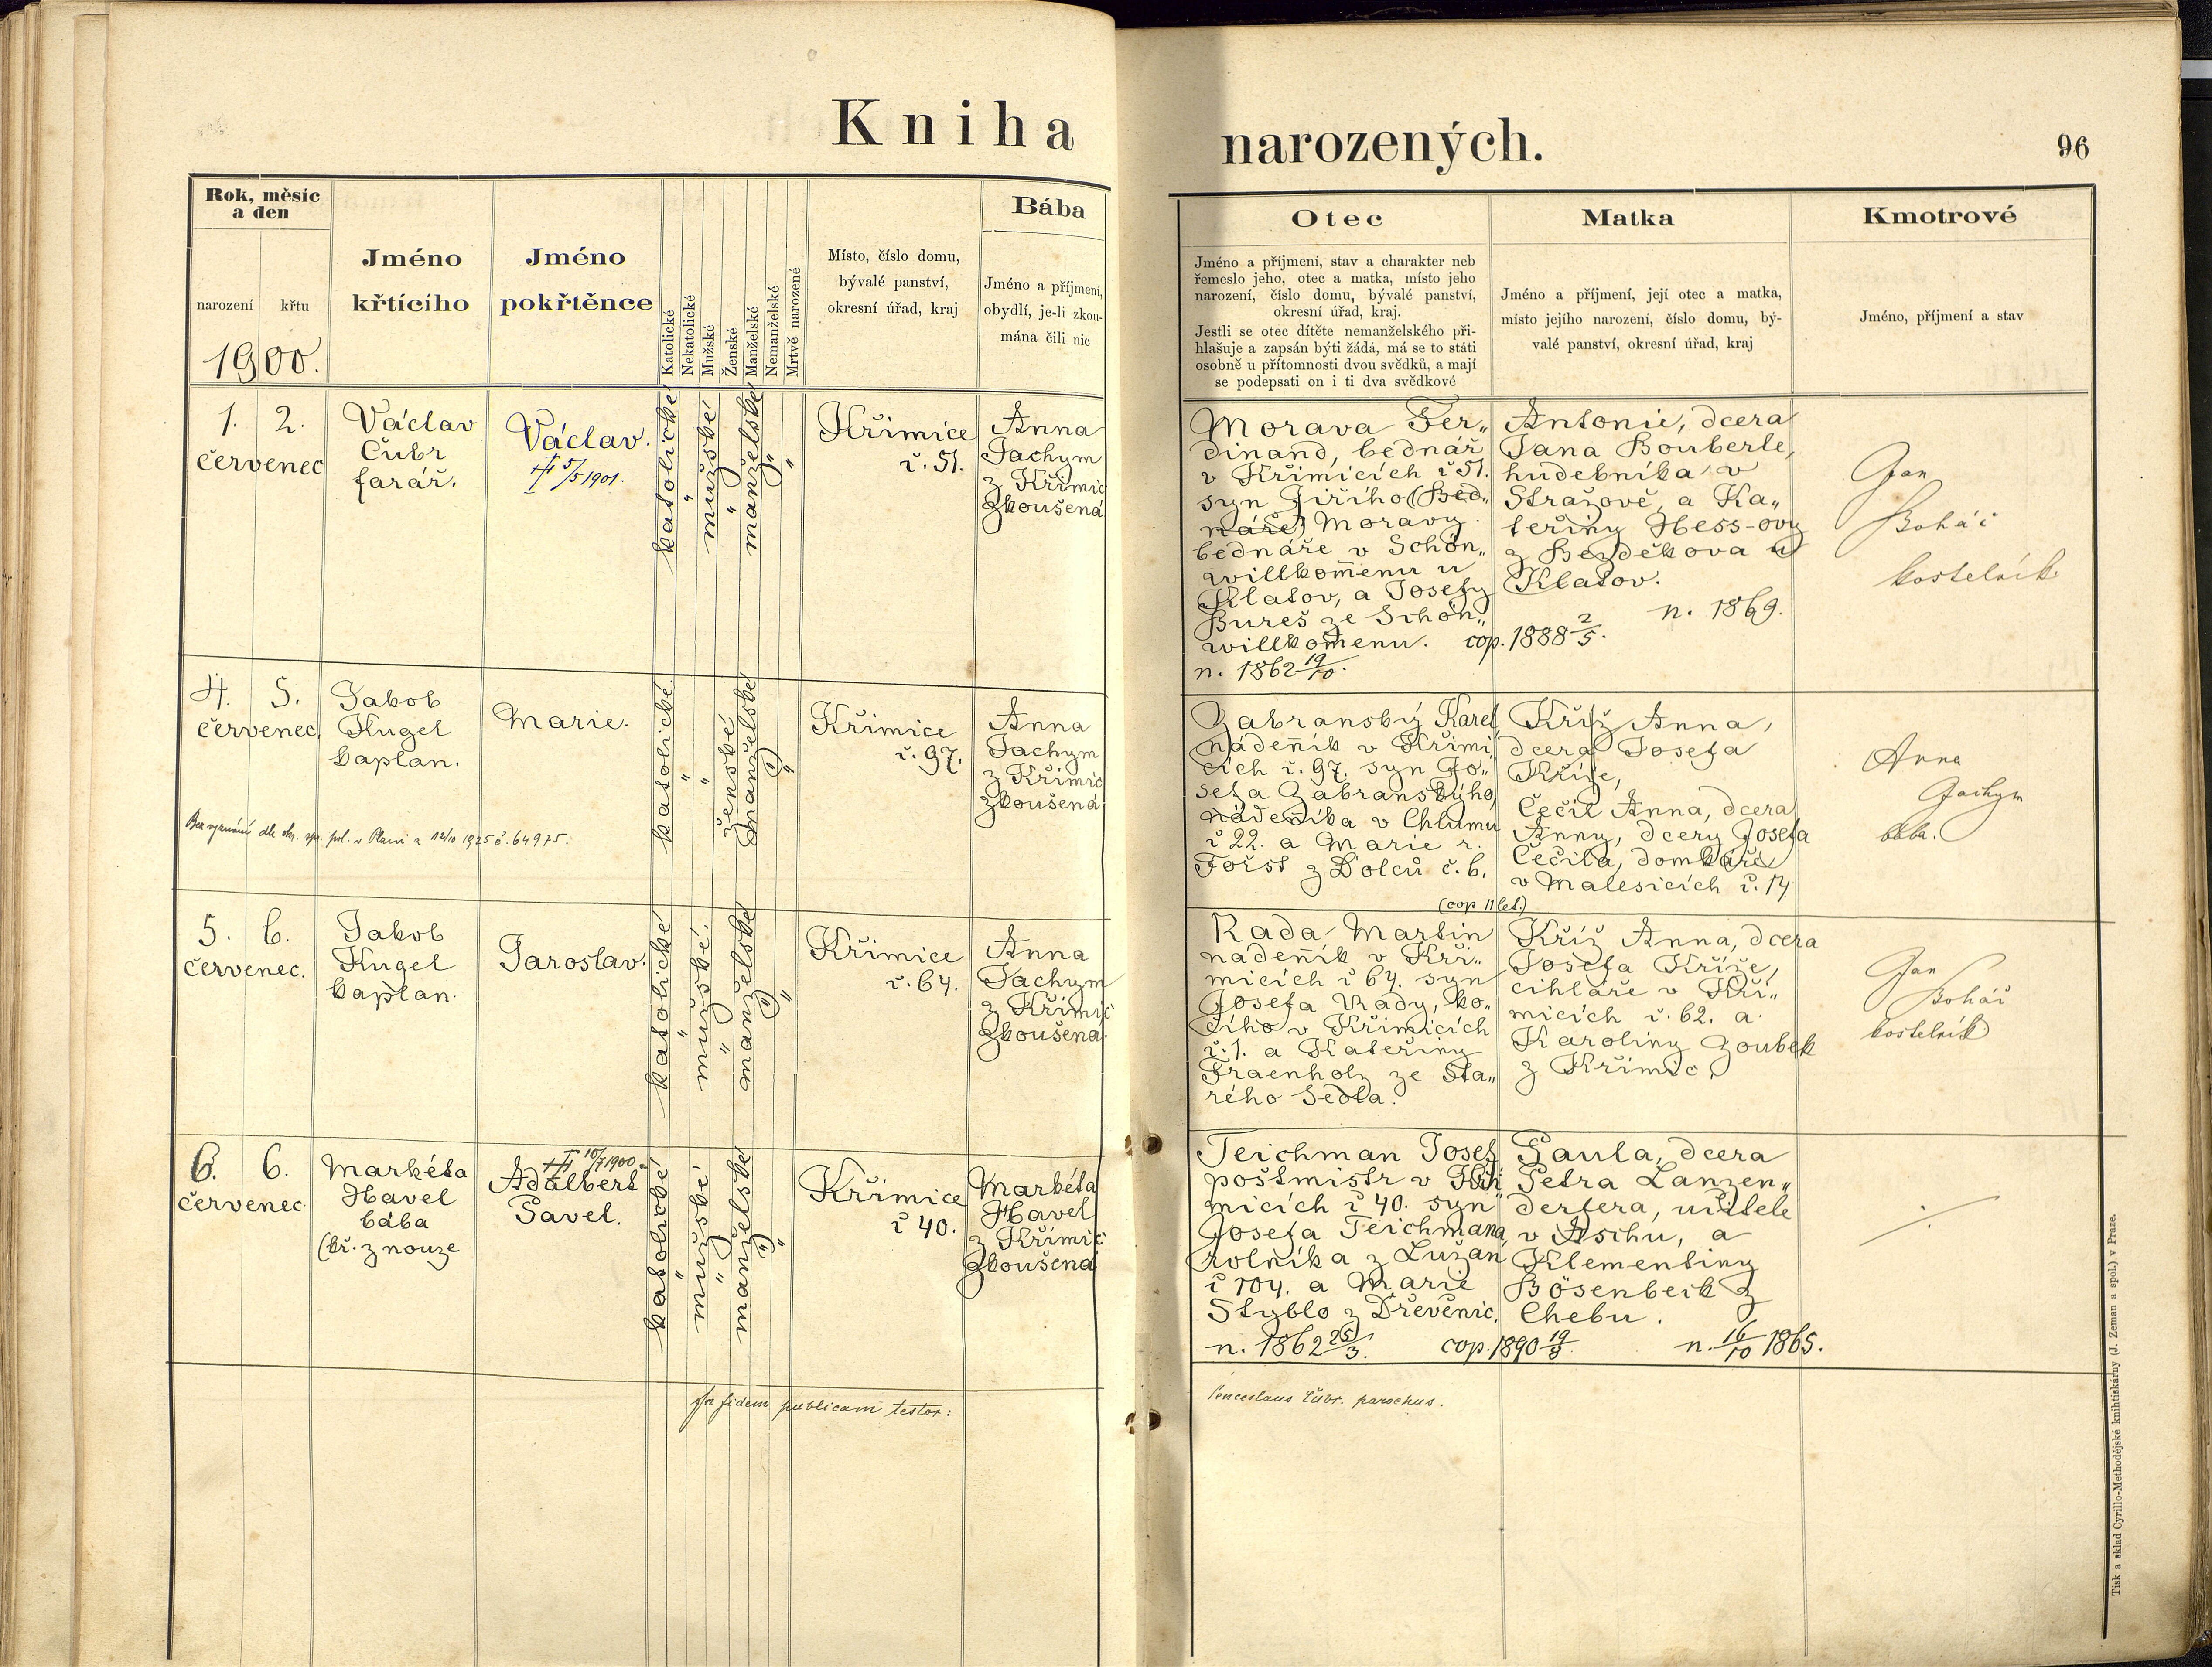 Kniha
narozených.
96
Rok, měsíc
a den
narození
křtu
1900.
Jméno
křtícího
Jméno
pokřtěnce
Katolické
Nekatolické
Mužské
Ženské
Manželské
Nemanželské
Mrtvě narozené
Místo, číslo domu,
bývalé panství,
okresní úřad, kraj
Bába
Jméno a příjmení,
obydlí, je-li zkou-
mána čili nic
Otec
Jméno a příjmení, stav a charakter neb
řemeslo jeho, otec a matka, místo jeho
narození, číslo domu, bývalé panství,
okresní úřad, kraj.
Jestli se otec dítěte nemanželského při-
hlašuje a zapsán býti žádá, má se to státi
osobně u přítomnosti dvou svědků, a mají
se podepsati on i ti dva svědkové
Matka
Jméno a příjmení, její otec a matka,
místo jejího narození, číslo domu, bý-
valé panství, okresní úřad, kraj
Kmotrové
Jméno, příjmení a stav
1. 2.
červenec
Václav
Čubr
farář.
Václav.
5/5 1901.
katolické
"
mužské
"
manželské
"
"
Křimice
č. 51.
Anna
Jachym
z Křimic
zkoušená
Morava Fer„
dinand, bednář
v Křimicích č 51.
syn Jiřího (Bed„
náře) Moravy
bednáře v Schön„
willkom̄enu u
Klatov, a Josefy
Bureš ze Schön„
willkom̄enu.
n. 1862 19/10.
cop. 1888 2/5.
Antonie, dcera
Jana Bouberle,
hudebníka v
Strašově, a Ka„
teřiny Hess-ovy
z Bezděkova u
Klatov.
n. 1869.
Jan
Boháč
kostelník
4. 5.
červenec
Jakob
Kugel
kaplan.
Marie.
katolické
"
"
ženské
manželské
"
"
Křimice
č. 97.
Anna
Jachym
z Křimic
zkoušená
Bez vyznání dle okr. spr. pol. v Plzni z 12/10 1925 č. 64975.
Zabranský Karel
náden̄ík v Křimi„
cích č. 97. syn Jo„
sefa Zabranského,
náden̄íka v Chlumu
č 22. a Marie r.
Fořst z Dolců č. 6.
(cop 11 let.)
Kříž Anna,
dcera Josefa
Kříže,
Čečil Anna, dcera
Anny, dcery Josefa
Čečila, domkáře
v Malesicích č. 14
Anna
Jachym
bába.
5. 6.
červenec.
Jakob
Kugel
kaplan.
Jaroslav.
katolické
"
mužské
"
manželské
"
"
Křimice
č. 64.
Anna
Jachym
z Křimic
zkoušená.
Rada Martin
náden̄ík v Kři„
micích č 64. syn
Josefa Rady, ko„
čího v Křimicích
č. 1. a Kateřiny
Fraenholz ze Sta„
rého Sedla.
Kříž Anna, dcera
Josefa Kříže,
cihláře v Kři„
micích č. 62. a
Karoliny Zoubek
z Křimic.
Jan
Boháč
kostelník
6. 6.
červenec
Markéta
Havel
bába
(kř. z nouze
10/7 1900
Adalbert
Pavel.
katolické
"
mužské
"
manželské
"
"
Křimice
č 40.
Markéta
Havel
z Křimic
zkoušená
Teichman Josef
poštmistr v Kři
micích č 40. syn
Josefa Teichmana,
rolníka z Lužan
č 104. a Marie
Styblo z Dřevěnic.
n. 1862 25/3.
Paula, dcera
Petra Lanzen„
derfera, učitele
v Aschu, a
Klementiny
Bösenbeck z
Chebu.
n. 16/10 1865.
In fidem publicam testor:
Venceslaus Čubr. parochus.
Tisk a sklad Cyrillo-Methodějské knihtiskárny (J. Zeman a spol.) v Praze.